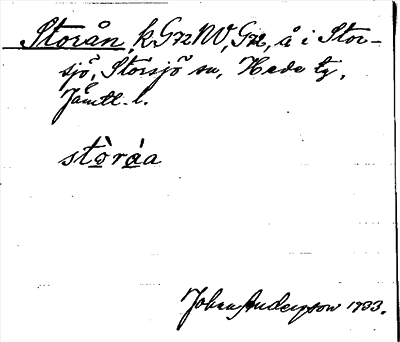 Storån, k Gr2NV, Gr2, å i Stor-
sjö, Storsjö sn, Hede tg,
Jämtl. l.
stò̱rá̱a
Johan Anderson 1933.